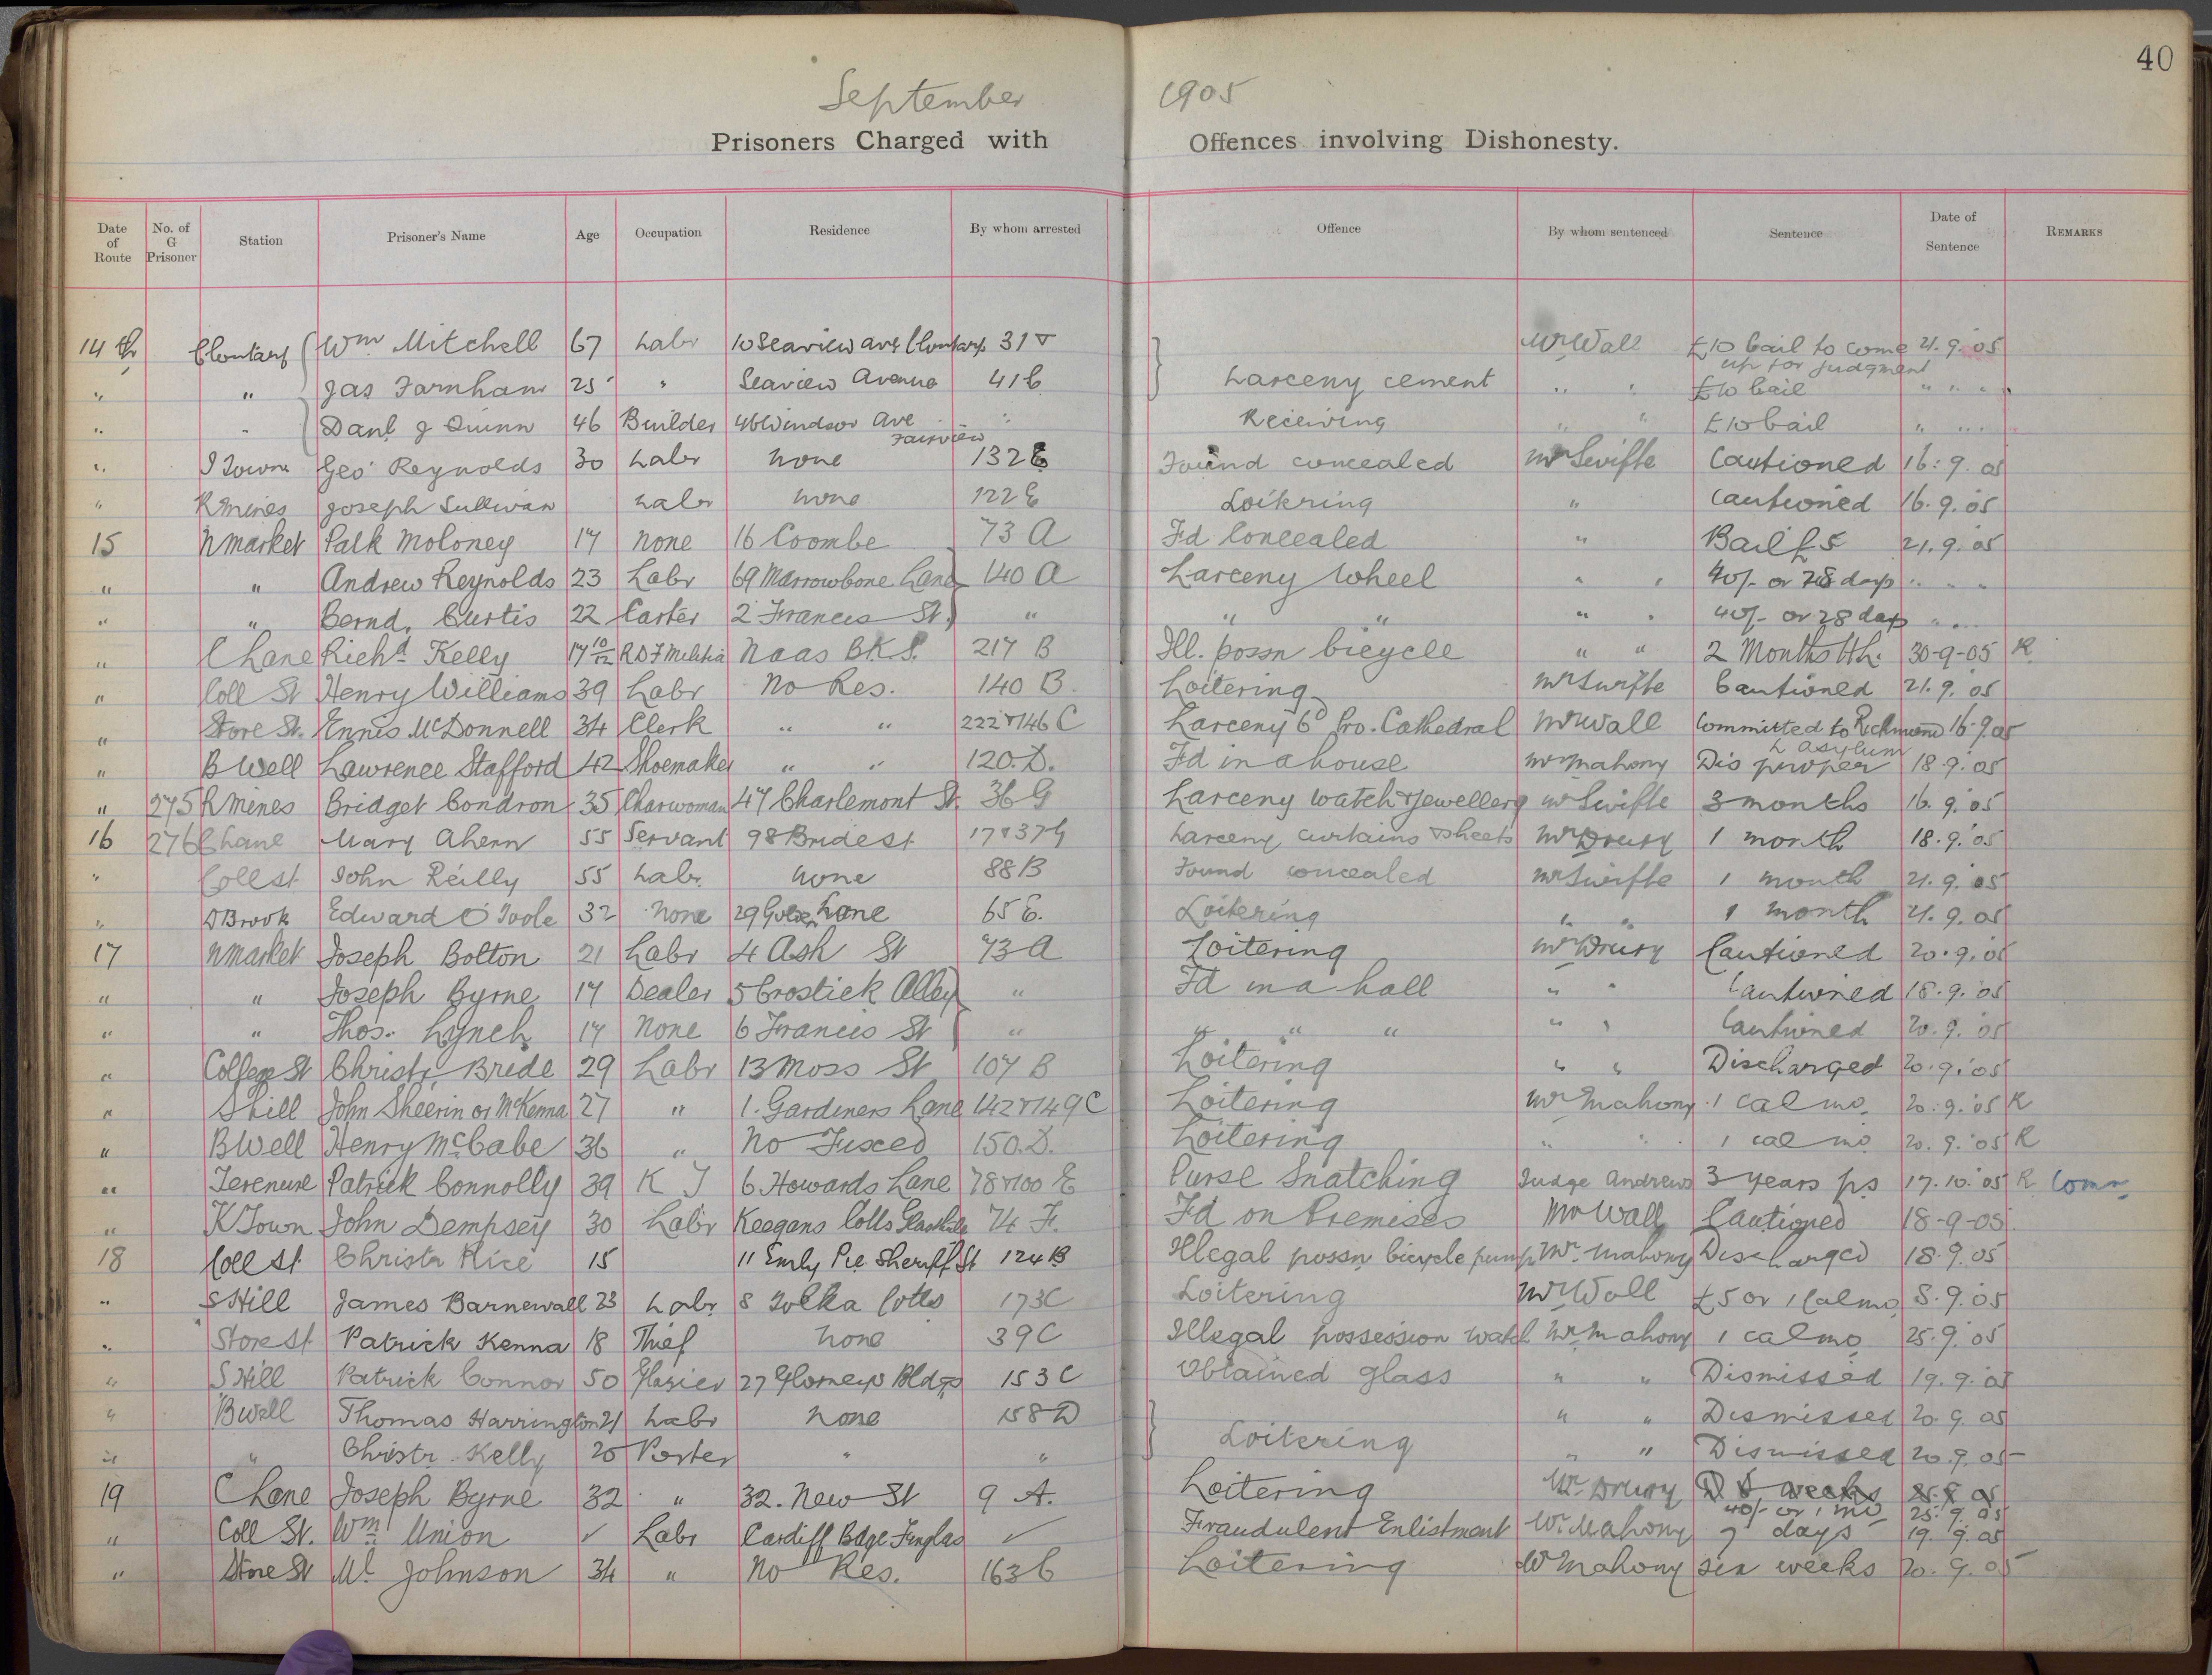 40
September 1905
Prisoners Charged with Offences involving Dishonesty.
Date of Route No. of G Prisoner Station Prisoner's Name Age Occupation Residence By whom arrested Offence By whom sentenced Sentence Date of Sentence REMARKS
14th Clontarf Wm Mitchell 67 Labr 10 Seaview Ave Clontarf 31 Mr Wall £10 bail to come up for judgment 21.9.05
" " Jas Farnham 25 " Seaview Avenue 41 Larceny cement " " £10 bail " " "
" " Danl J Quinn 46 Builder 46 Windsor Ave Fairview " Receiving " " £10 bail " " "
" Geo Reynolds 30 Labr none 132 E Found concealed Mr Swifte Cautioned 16.9.05
" Rmines Joseph Sullivan Labr none 122 E Loitering " Cautioned 16.9.05
15 Nmarket Patk Moloney 17 none 16 Coombe 73 A Fd Concealed " Bail £5 21.9.05
" " Andrew Reynolds 23 Labr 69 Marrowbone Lane 140 A Larceny Wheel " " 40/- or 28 days " " "
" " Bernd. Curtis 22 Carter 2 Francis St. " " " " " 40/- or 28 days " " "
" C Lane Richd Kelly 17 10/12 RDF Militia Naas BKS. 217 B Ill. possn bicycle " " 2 Months Hh. 30-9-05 R
" Coll St Henry Williams 39 Labr No Res. 140 B. Loitering Mr Swifte Cautioned 21.9.05
" Store St. Ennis McDonnell 34 Clerk " " 222 & 146 C Larceny 6d Pro. Cathedral Mr Wall Committed to Richmond L asylum 16.9.05
" B Well Lawrence Stafford 42 Shoemaker " " 120.D. Fd in a house Mr Mahony Dis proper 18.9.05
" 275 Rmines Bridget Condron 35 Charwoman 47 Charlemont St. 36 G Larceny watch & Jewellery Mr Swifte 3 months 16.9.05
16 276 C Lane Mary Ahern 55 Servant 98 Bride St 17 & 37 G Larceny curtains & sheets Mr Drury 1 month 18.9.05
" Coll St John Reilly 55 Labr. none 88 B Found concealed Mr Swifte 1 month 21.9.05
" DBrook Edward O'Toole 32 None 29 Golden Lane 65 E. Loitering " " 1 month 21.9.05
17 Nmarket Joseph Bolton 21 Labr 4 Ash St 73 A Loitering Mr Drury Cautioned 20.9.05
" " Joseph Byrne 17 Dealer 5 Crostick Alley " Fd in a hall " " Cautioned 18.9.05
" " Thos. Lynch 17 None 6 Francis St " " " " " " Cautioned 20.9.05
" College St Christr Bride 29 Labr 13 Moss St 107 B Loitering " " Discharged 20.9.05
" S Hill John Sheerin or McKenna 27 " 1. Gardiners Lane 142 & 149 C Loitering Mr Mahony 1 cal mo. 20.9.05 R
" BWell Henry McCabe 36 " No Fixced 150.D. Loitering " " 1 cal mo 20.9.05 R
" Terenure Patrick Connolly 39 6 Howards Lane 78 & 100 E Purse Snatching Judge Andrews 3 years ps 17.10.05 R
" K Town John Dempsey 30 Labr Keegans Cotts 74 F. Fd on Premises Mr Wall Cautioned 18-9-05
18 Coll St Christr Rice 15 11 Emly Pce Sheriff St 124 B Illegal possn bicycle pump Mr. Mahony Discharged 18.9.05
" S Hill James Barnewall 23 Labr 8 Tolka Cotts 173C Loitering Mr Wall £5 or 1 Cal mo 8.9.05
" Store St Patrick Kenna 18 Thief none 39 C Illegal possession watch Mr Mahony 1 cal mo 25.9.05
" S Hill Patrick Connor 50 Glazier 27 Bldgs 153 C Obtained glass " " Dismissed 19.9.05
" Bwell Thomas Harrington 21 Labr none 158 D " " Dismissed 20.9.05
" " Christr. Kelly 20 Porter " " Loitering " " Dismissed 20.9.05
19 C Lane Joseph Byrne 32 " 32. New St 9 A. Loitering Mr Drury weeks 40/- or 1 mo 25.9.05
" Coll St. Wm Union ✓ Labr Cardiff Bdge Finglas ✓ Fraudulent Enlistment Mr Mahony 7 days 19.9.05
" Store St Ml Johnson 34 " No Res. 163 C Loitering Mr Mahony six weeks 20.9.05